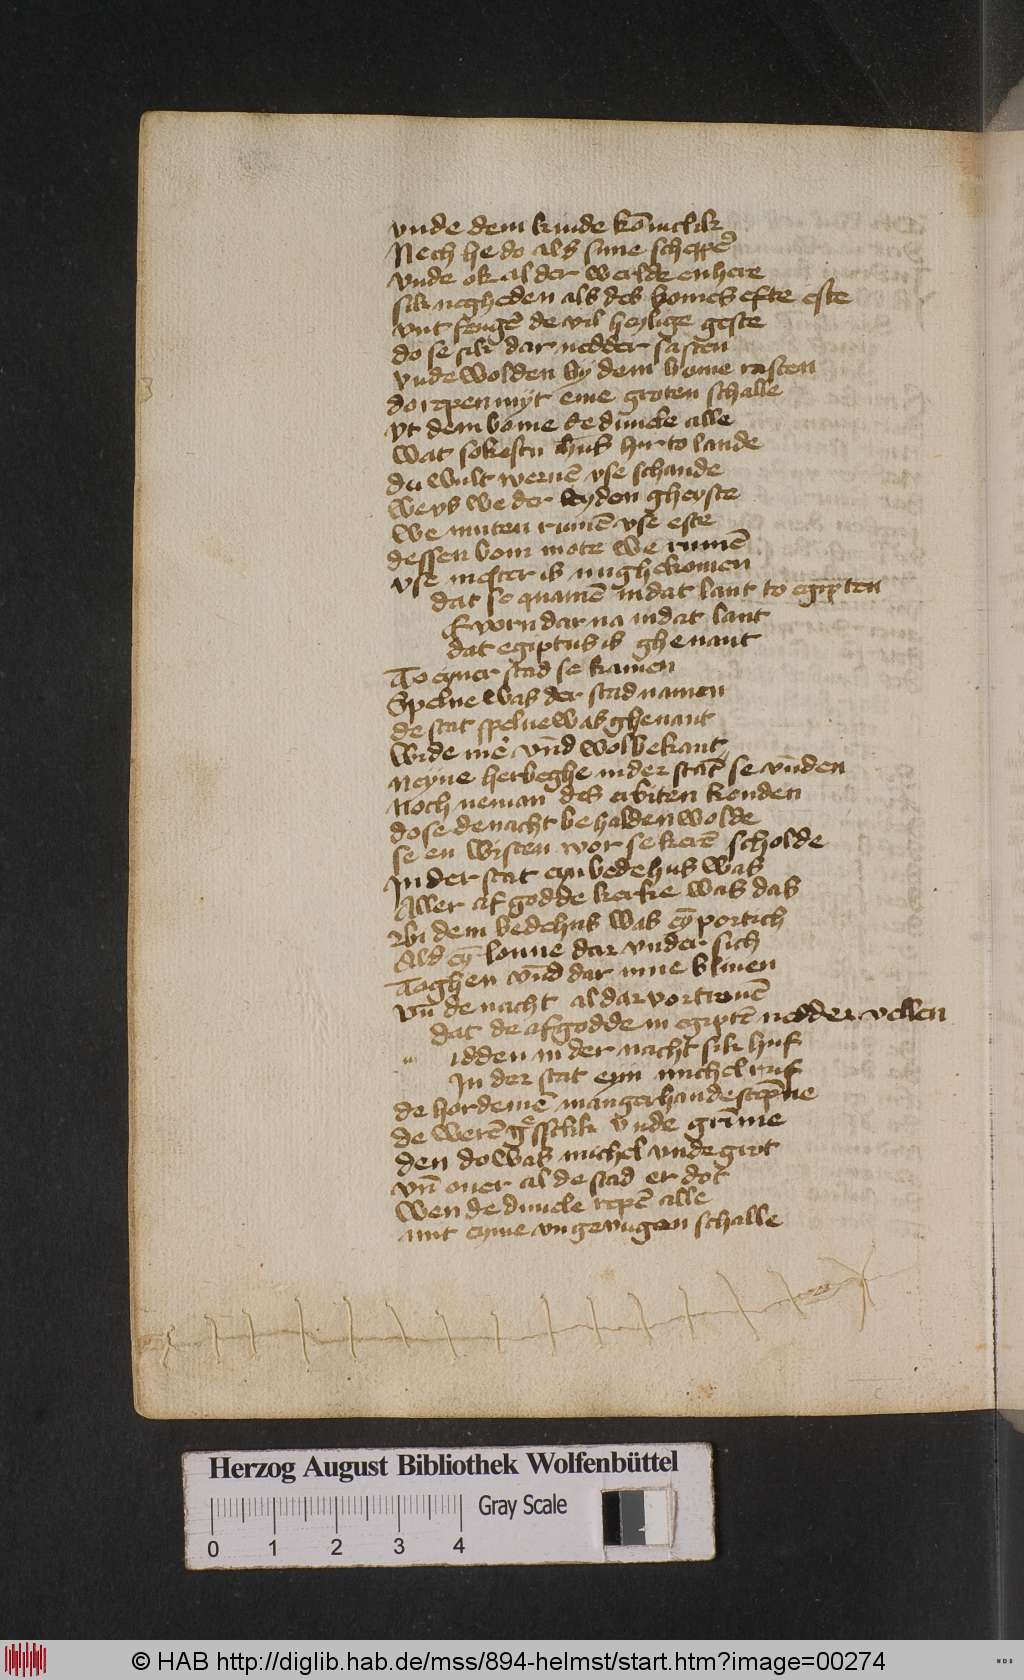 vnde dem kinde kōincklik
Nech he do als sine schepp̄
vnde ok al der werlde en here
sik negheden als des bomes efte este
vnt fenḡ de vil heylige geste
do se sik dar nedder sasten
vnde wolden by dem bome rasten
do repen myt eme groten schalle
vt dem bome de duuele alle
wat sokestu ihūs hir to lande
du wult wernē vse schande
we vs we der leyden gheyste
we muten rumē vse este
dessen bom mote we rumē
vse mester is nu ghekomen
dat se quamē in dat lant to egipten
E vorn dar na in dat lant
dat egiptus is ghenant
To eyner stad se kamen
Spelue was der stad namen
de stat spelue was ghenant
wide mē vn̄d wol bekant
Neyne herbeghe in der stat se vn̄den
Noch neman des erbiten konden
do se de nacht behalden wolde
se en wisten wor se kerē scholde
In der stat eyn bedehus was
Aller afgodde kerke was das
Bi dem bedehus was eȳ portich
Ald eȳ lonne dar vnder sich
Toghen vn̄d dar inne bliuen
vn̄ de nacht al dar vortriuē
dat de afgodde in egiptē nedder vellen
idden in der nacht sik huf
In der stat eyn michel ruf
de horde mē mangerhande stēpne
de werē gͤsslik vnde grimme
den do was michel vnde grot
vn̄ ouer al de stad er dot
wen de duuele repē alle
mit eyme vngevugen schalle
Herzog August Bibliothek Wolfenbüttel
Gray Scale
0 1 2 3 4
© HAB http://diglib.hab.de/mss/894-helmst/start.htm?image=00274